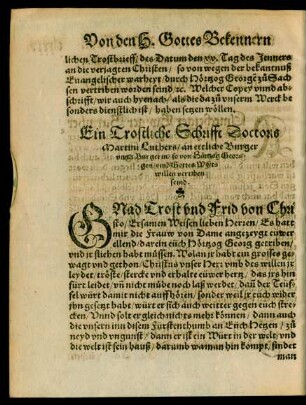 Von den H. Gottes Bekennern
lichen Trostbrieff / des Datum den xv. Tag des Jenners
an die verjagten Christen / so von wegen der bekantnuß
Euangelischer warheyt / durch Hörtzog Georgē zů Sach
sen vertriben worden seind ꝛc. Welcher Copey vnnd ab-
schrifft / wir auch hyenach / als die da zů vnserm Werck be
sonders dienstlich ist / haben setzen wöllen.
Ein Trostliche Schrifft Doctors
Martini Luthers / an ettliche Burger
vnnd Burgerin so von Hörtzog Geor-
gen / vmb Gottes Worts
willen vertriben
seynd.
GNad Trost vnd Frid von Chri
sto / Ersamen Weisen lieben Herren / Es hatt
mir die Fraw von Dame angezeygt ewer
ellend / darein euch Hörtzog Georg getriben /
vnd jr fliehen habt müssen. Wolan jr habt ein grosses ge-
wagt vnd gethon / Christus vnser Herr vmb des willen jr
leydet / tröste / stercke vnd erhalte eüwer hertz / das jrs hin
fürt leidet / vñ nicht müde noch laß werdet / dañ der Teuf-
sel würt damit nicht auffhören / sonder weil jr euch wider
jhn gesetzt habt / würt er sich auch weitter gegen euch stre-
cken / Vnnd solt er gleich nichts mehr können / dann auch
die vnsern inn disem Fürstenthumb an Euch Hetzen / zů
neyd vnd vngunst / dann er ist ein Würt in der welt / vnd
die welt ist sein hauß / darumb wa man hin kompt / findet
man